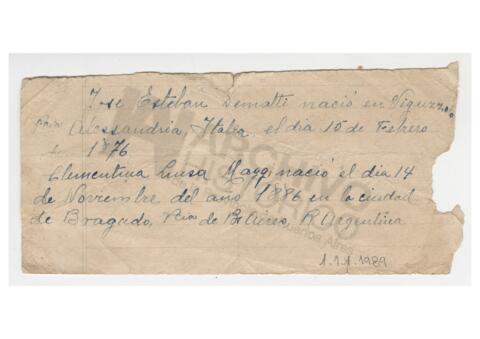 Jose Esteban Sematti nació en Viguzzolo
Prov. Alessandria, Italia, el dia 15 de Febrero
de 1876
Clementina Luisa Maggi nació el dia 14
de Noviembre del año 1886 en la ciudad
de Bragado, Pcia de Bs Aires, R. Argentina
ARCHIVO
HISTÓRICO
Buenos Aires
1.1.1.1989